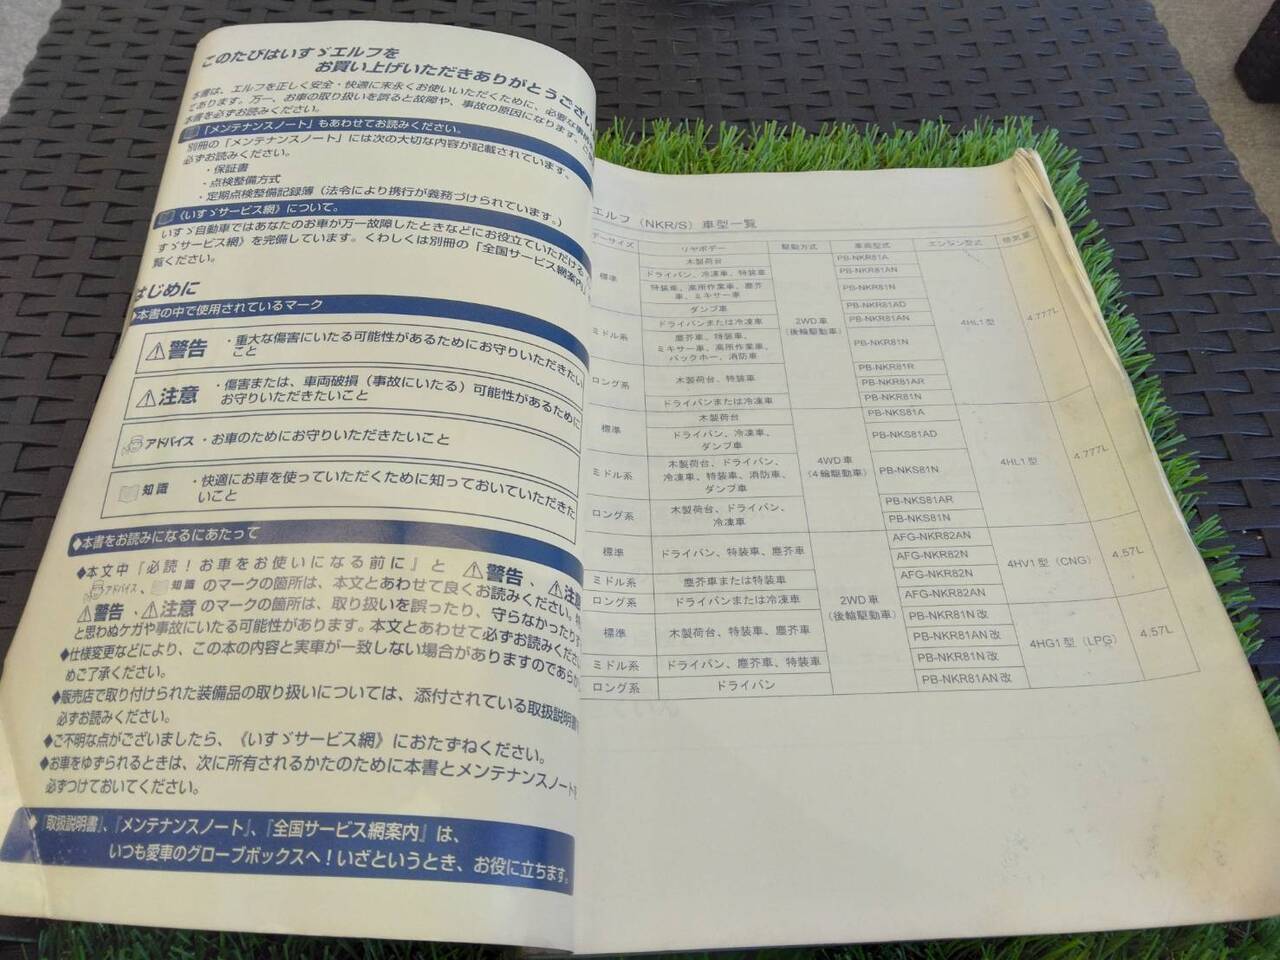 このたびはいすゞエルフを
お買い上げいただきありがとうござい
本書は、エルフを正しく安全・快適に末永くお使いいただくために、必要な事
てあります。万一、お車の取り扱いを誤ると故障や、事故の原因になります。
本書を必ずお読みください。
「メンテナンスノート」もあわせてお読みください。
別冊の「メンテナンスノート」には次の大切な内容が記載されています。
必ずお読みください。
・保証書
・点検整備方式
・定期点検整備記録簿（法令により携行が義務づけられています。）
《いすゞサービス網》について。
いすゞ自動車ではあなたのお車が万一故障したときなどにお役立ていただける
すゞサービス網》を完備しています。くわしくは別冊の「全国サービス網案内」
覧ください。
はじめに
◆本書の中で使用されているマーク
⚠警告 ・重大な傷害にいたる可能性があるためにお守りいただきたい
こと
⚠注意 ・傷害または、車両破損（事故にいたる）可能性があるために
お守りいただきたいこと
アドバイス ・お車のためにお守りいただきたいこと
知識 ・快適にお車を使っていただくために知っておいていただきた
いこと
◆本書をお読みになるにあたって
◆本文中「必読！お車をお使いになる前に」と ⚠警告、⚠注意
アドバイス、知識 のマークの箇所は、本文とあわせて良くお読みください。
⚠警告、⚠注意のマークの箇所は、取り扱いを誤ったり、守らなかったりす
と思わぬケガや事故にいたる可能性があります。本文とあわせて必ずお読みくださ
◆仕様変更などにより、この本の内容と実車が一致しない場合がありますのであらか
めご了承ください。
◆販売店で取り付けられた装備品の取り扱いについては、添付されている取扱説明書
必ずお読みください。
◆ご不明な点がございましたら、《いすゞサービス網》におたずねください。
◆お車をゆずられるときは、次に所有されるかたのために本書とメンテナンスノート
必ずつけておいてください。
◆『取扱説明書』、『メンテナンスノート』、『全国サービス網案内』は、
いつも愛車のグローブボックスへ！いざというとき、お役に立ちます。
エルフ（NKR/S）車型一覧
デーサイズ リヤボデー 駆動方式 車両型式 エンジン型式 排気量
標準 木製荷台 2WD車 PB-NKR81A 4HL1型 4.777L
（後輪駆動車）
ドライバン、冷凍車、特装車 PB-NKR81AN
特装車、高所作業車、塵芥 PB-NKR81N
車、ミキサー車
ダンプ車 PB-NKR81AD
ミドル系 ドライバンまたは冷凍車 PB-NKR81AN
塵芥車、特装車、 PB-NKR81N
ミキサー車、高所作業車、
バックホー、消防車
ロング系 木製荷台、特装車 PB-NKR81R
PB-NKR81AR
ドライバンまたは冷凍車 PB-NKR81N
標準 木製荷台 4WD車 PB-NKS81A 4HL1型 4.777L
（4輪駆動車）
ドライバン、冷凍車、 PB-NKS81AD
ダンプ車
ミドル系 木製荷台、ドライバン、 PB-NKS81N
冷凍車、特装車、消防車、
ダンプ車
ロング系 木製荷台、ドライバン、 PB-NKS81AR
冷凍車 PB-NKS81N
標準 ドライバン、特装車、塵芥車 2WD車 AFG-NKR82AN 4HV1型（CNG） 4.57L
（後輪駆動車） AFG-NKR82N
ミドル系 塵芥車または特装車 AFG-NKR82N
ロング系 ドライバンまたは冷凍車 AFG-NKR82AN
標準 木製荷台、特装車、塵芥車 PB-NKR81N改 4HG1型（LPG） 4.57L
PB-NKR81AN改
ミドル系 ドライバン、塵芥車、特装車 PB-NKR81N改
ロング系 ドライバン PB-NKR81AN改